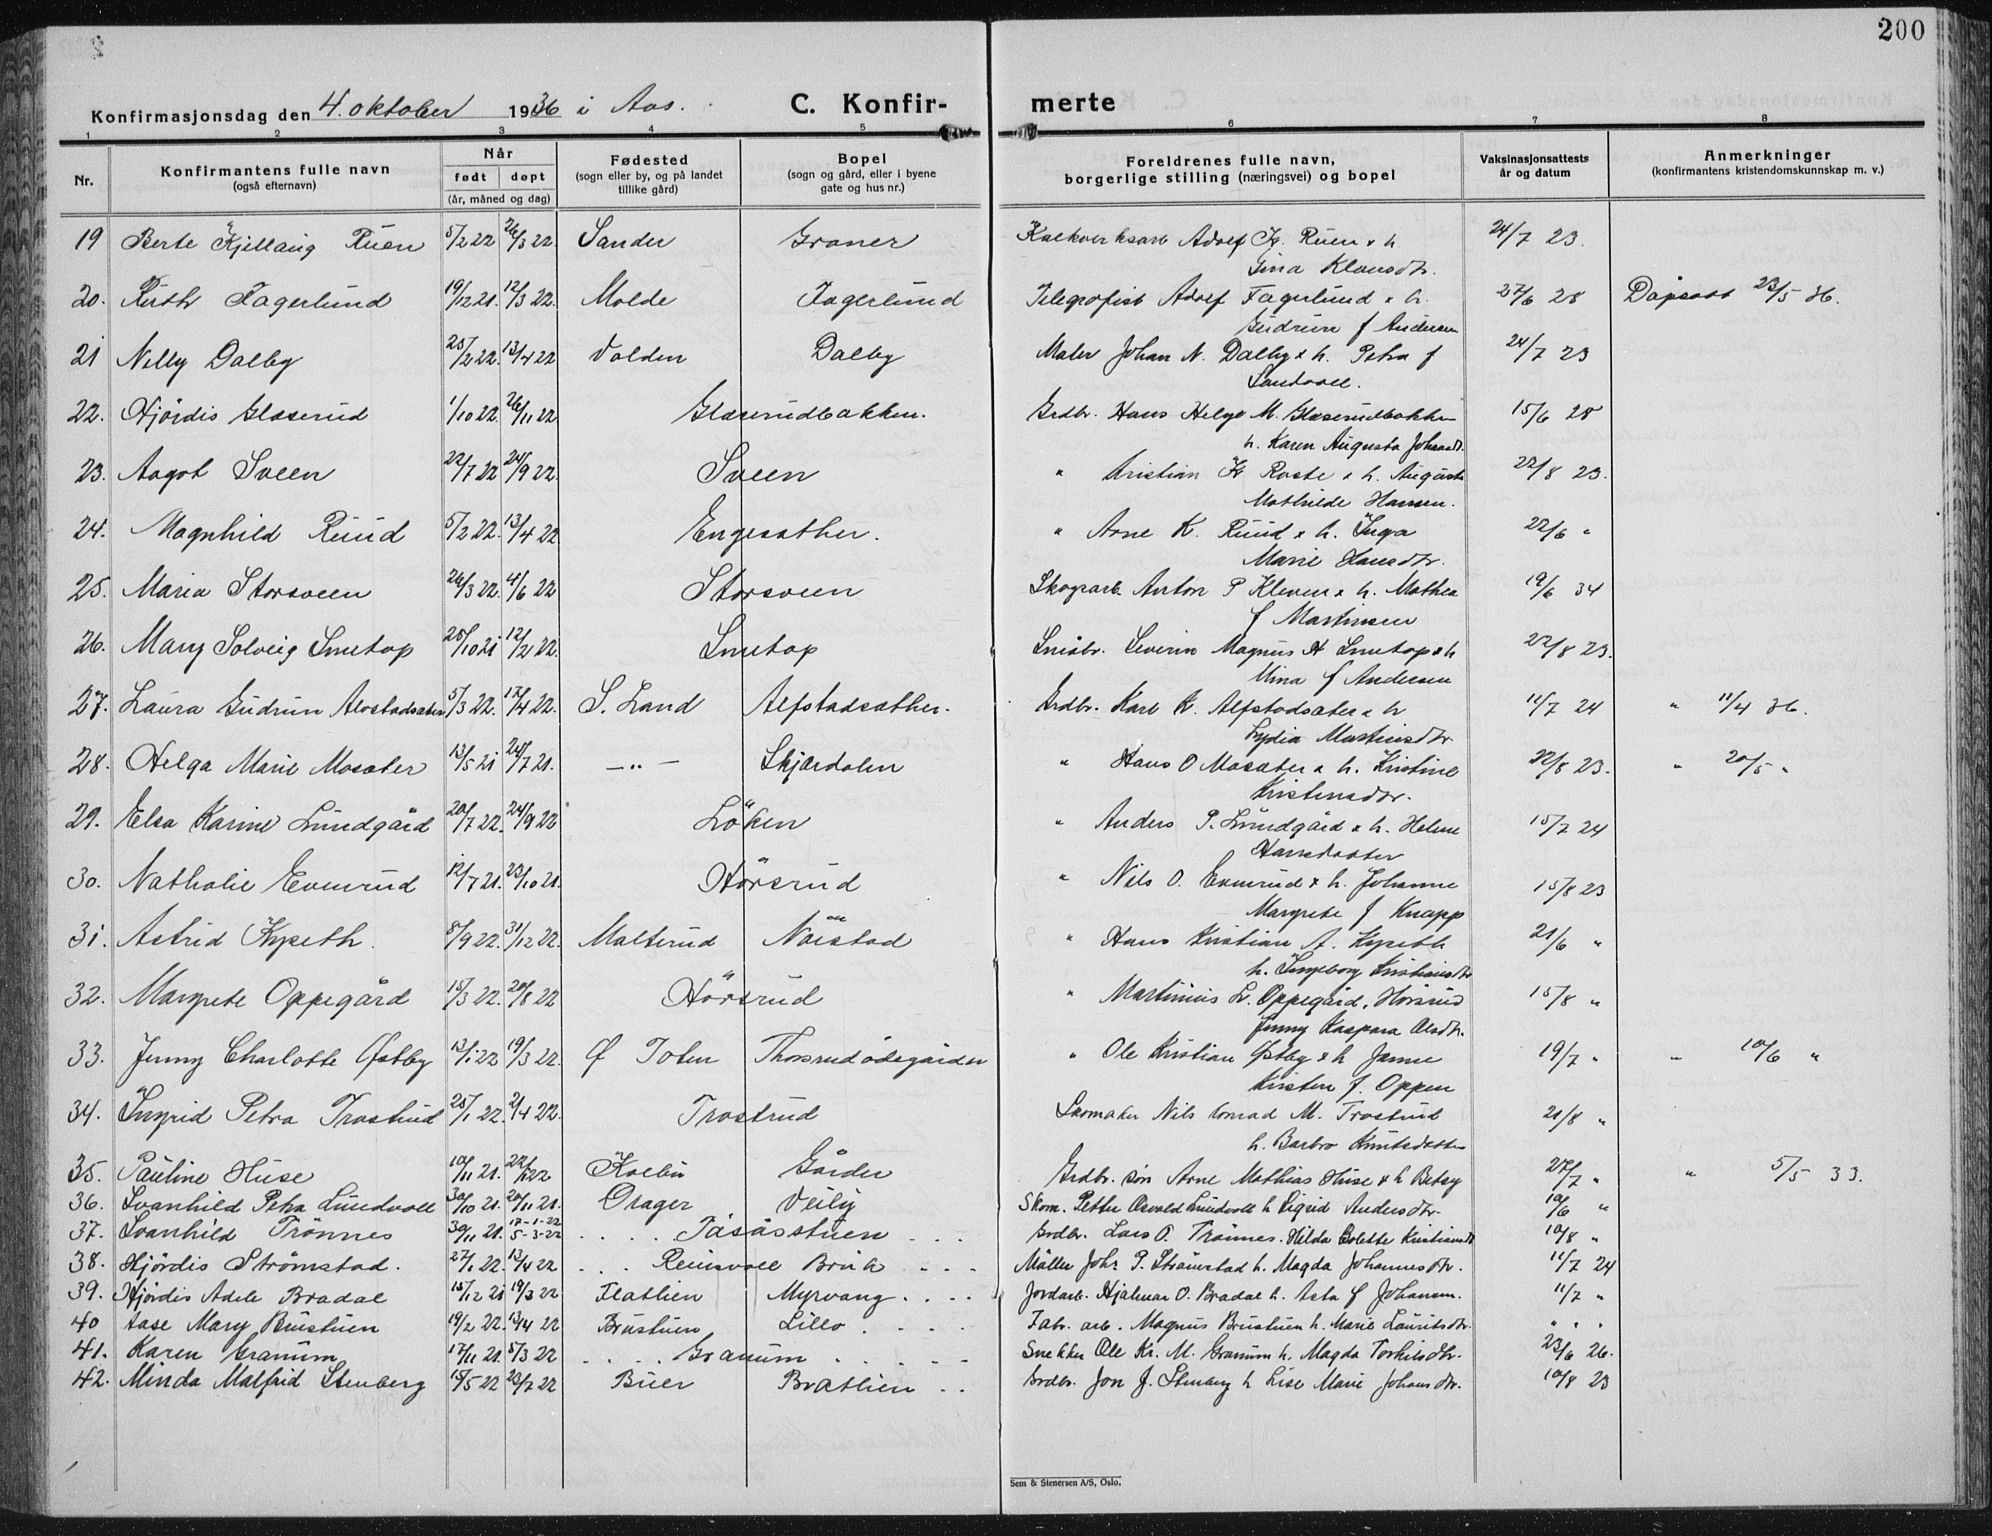 200
Konfirmasjonsdag den 4. oktober 1936 i Aas. C. Konfir- merte
1 2 3 4 5 6 7 8
Nr. Konfirmantens fulle navn (også efternavn) Når født døpt (år, måned og dag) Fødested (sogn eller by, og på landet tillike gård) Bopel (sogn og gård, eller i byene gate og hus nr.) Foreldrenes fulle navn, borgerlige stilling (næringsvei) og bopel Vaksinasjonsattests år og datum Anmerkninger (konfirmantens kristendomskunnskap m. v.)
19 Berte Kjellaug Ruen 5/2 22 26/3 22. Sander Graner Adolf Kr. Ruen & h. 24/7 23.
Gina Klausdtr.
20. Ruth Fagerlund 19/12 21. 12/3 22. Molde Fagerlund Telegrafist Adolf Fagerlund & h. 27/6 28 Dåpsatt 23/5 36.
Gudrun f Andersen
21 Nelly Dalby 25/2 22. 13/4 22 Volden Dalby Maler Johan N. Dalby & h. Petra f 24/7 23
Sandvoll.
22. Hjördis Glæserud 1/10 22. 26/11 22 Glæserudbakken. Grdbr. Hans Helge M. Glæserudbakken 15/6 28
h. Karen Augusta Johansdtr.
23. Aagot Sveen 22/7 22 24/9 22. Sveen " Kristian Kr Roste & h. Augusta 22/8 23.
Mathilde Hansen.
24. Magnhild Ruud 5/2 22. 13/4 22 Engesæther. " Arne K. Ruud & h. Inga 22/6 "
Marie Hansdtr.
25. Maria Storsveen 26/3 22. 4/6 22 Storsveen Skogsarb. Anton P Kleven & h. Mathea 19/6 34
f Martinsen
26. Mary Solveig Smetop 25/10 21 12/2 22. Smetop Småbr. Severin Magnus A Smetop & h 22/8 23.
Mina f Andersen
27. Laura Gudrun Alvstadsæter 5/3 22. 17/4 22. S. Land Alfstadsæther. Grdbr. Karl K. Alfstadsæter & h 11/7 24 " 11/4 36.
Lydia Martinsdtr.
28. Helga Marie Mosæter 13/5 21 24/7 21. — " — Skjærdalen " Hans O Mosæter & h. Kristine 22/8 23. " 20/5 "
Kristensdtr.
29. Elsa Karine Lundgård 20/7 22. 24/9 22 Löken " Anders P. Lundgård & h. Helene 15/7 24
Hansdatter
30. Nathalie Evenrud 12/7 21. 23/10 21. Hörsrud " Nils O. Evenrud & h. Johanne 15/8 23
Margrete f Knapp
31. Astrid Kyseth. 8/9 22. 31/12 22. Malterud Nöistad " Hans Kristian A. Kyseth 21/6 "
h. Ingeborg Kristiansdtr
32. Margrete Oppegård 15/3 22. 20/8 22 Hörsrud " Martinius L. Oppegård, Hörsrud 15/8 "
Jenny Kaspara Olsdtr.
33. Jenny Charlotte Østby 13/1 22 19/3 22. Ø Toten Thorsrudödegården " Ole Kristian Østby & h Janne 19/7 " " 10/6 "
Kirsten f. Oppen
34. Ingrid Petra Trostrud 25/1 22. 2/4 22. Trostrud Skomaker Nils Conrad M. Trostrud 21/8 "
h. Barbro Knutsdatter
35. Pauline Huse 10/11 21. 22/1 22 Kolbu Gårder Grdbr. søn Arne Mathias Huse & h Betsy 27/7 " " 5/5 33.
36. Svanhild Petra Lundvoll 30/10 21. 20/11 21. Orager Veily Skom. Petter Osvald Lundvoll h Sigrid Andersdtr. 10/6 "
37. Svanhild Trönnes 30/11 21. 17-1-22 5-3-22 . . . . Påsåsstuen . . . Grdbr. Lars O. Trönnes. Hilda Colette Kristiansdtr 10/8 "
38. Hjördis Strömstad. 27/1 22. 13/4 22 . . . Reinsvoll Bruk . . . Møller Johs P. Strömstad h. Magda Johannesdtr. 11/7 24
39. Hjördis Adele Bradal 15/12 21 19/3 22 Flatlien Myrvang . . . . Jordarb. Hjalmar O. Bradal h. Asta f Johansen. 11/7 "
40 Aase Mary Brustuen 19/2 22. 13/4 22 Brustuen Lillo . . . . Fabr. arb. Magnus Brustuen h. Marie Lauritsdtr. " " "
41. Karen Granum 17/11 21. 5/3 22 . . . . Granum . . . . . Snekker Ole Kr. M. Granum h. Magda Torkilsdtr. 23/6 26.
42. Minda Malfrid Stenberg 15/5 22 23/7 22 Buer Bratlien . . Grdbr. Jon J. Stenberg h Lise Marie Johansdtr. 10/8 23
Sem & Stenersen A/S, Oslo.